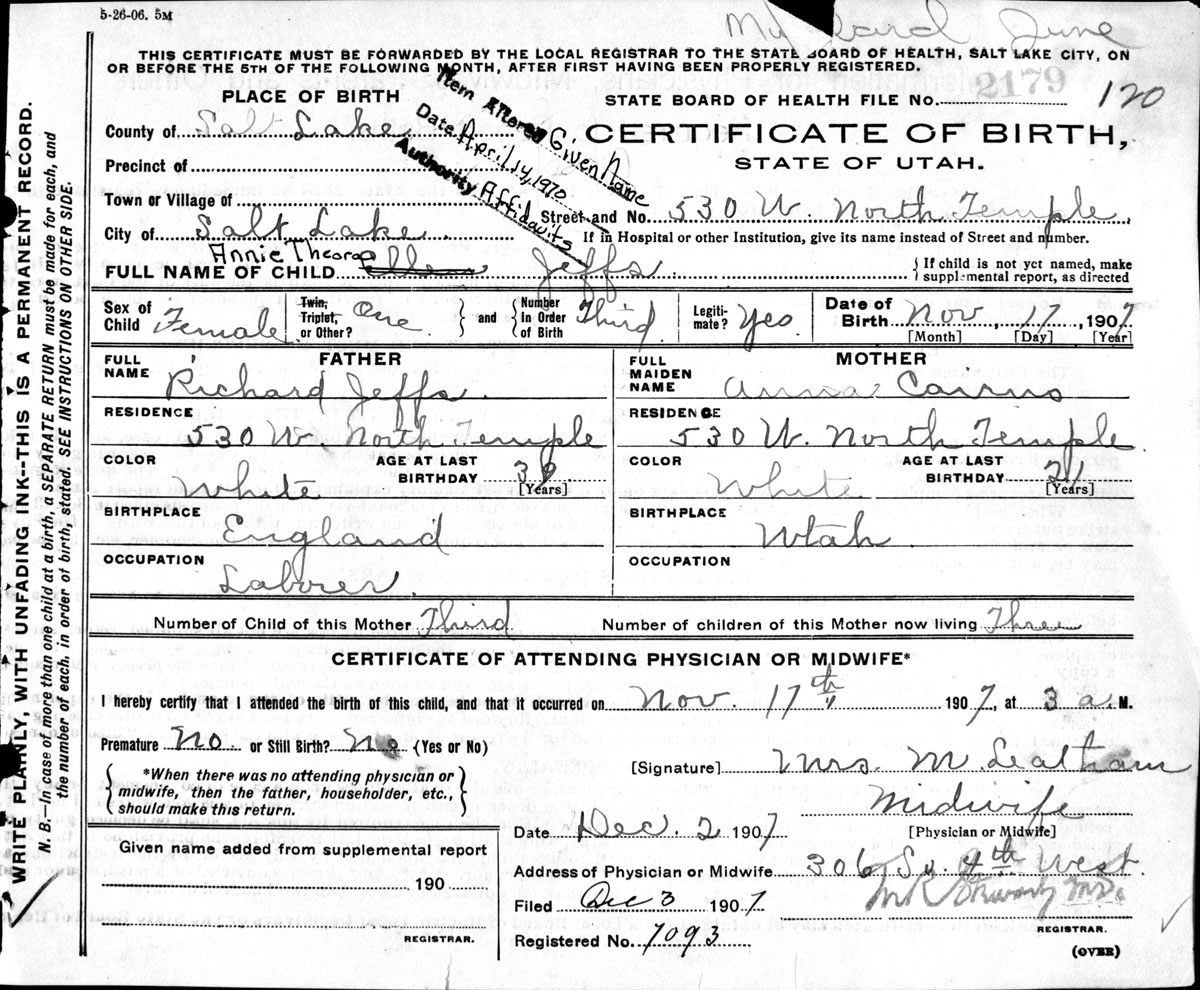 5-26-06. 5M
June
THIS CERTIFICATE MUST BE FORWARDED BY THE LOCAL REGISTRAR TO THE STATE BOARD OF HEALTH, SALT LAKE CITY, ON
OR BEFORE THE 5TH OF THE FOLLOWING MONTH, AFTER FIRST HAVING BEEN PROPERLY REGISTERED.
2179
120
PLACE OF BIRTH
STATE BOARD OF HEALTH FILE NO.
County of Salt Lake
Item Altered Given Name
Date April 14, 1970
Authority Affidavits
CERTIFICATE OF BIRTH,
STATE OF UTAH.
Precinct of
Town or Village of
Street and No. 530 W. North Temple
City of Salt Lake
If in Hospital or other Institution, give its name instead of Street and number.
Annie Theora
FULL NAME OF CHILD Ellen Jeffs
If child is not yet named, make
supplemental report, as directed
Sex of Child Female
Twin, Triplet, or Other? One
and
Number in Order of Birth Third
Legiti-mate? Yes
Date of Birth Nov, 17, 1907
[Month] [Day] [Year]
FATHER
FULL NAME Richard Jeffs
RESIDENCE
530 W. North Temple
COLOR White
AGE AT LAST BIRTHDAY
[Years]
BIRTHPLACE
England
OCCUPATION
Laborer
MOTHER
FULL MAIDEN NAME Anna Cairns
RESIDENCE
530 W. North Temple
COLOR White
AGE AT LAST BIRTHDAY 21
[Years]
BIRTHPLACE
Utah
OCCUPATION
Number of Child of this Mother Third
Number of children of this Mother now living Three
CERTIFICATE OF ATTENDING PHYSICIAN OR MIDWIFE*
I hereby certify that I attended the birth of this child, and that it occurred on Nov. 17th 1907, at 3 a. M.
Premature No or Still Birth? No (Yes or No)
*When there was no attending physician or
midwife, then the father, householder, etc.,
should make this return.
[Signature] Mrs. M. Leatham
Midwife
[Physician or Midwife]
Date Dec. 2 1907
Address of Physician or Midwife 306 So. 4th West
Filed Dec 3 1907
Registered No. 7093
REGISTRAR.
(OVER)
Given name added from supplemental report
190
REGISTRAR.
WRITE PLAINLY, WITH UNFADING INK--THIS IS A PERMANENT RECORD.
N. B.--In case of more than one child at a birth, a SEPARATE RETURN must be made for each, and
the number of each, in order of birth, stated. SEE INSTRUCTIONS ON OTHER SIDE.